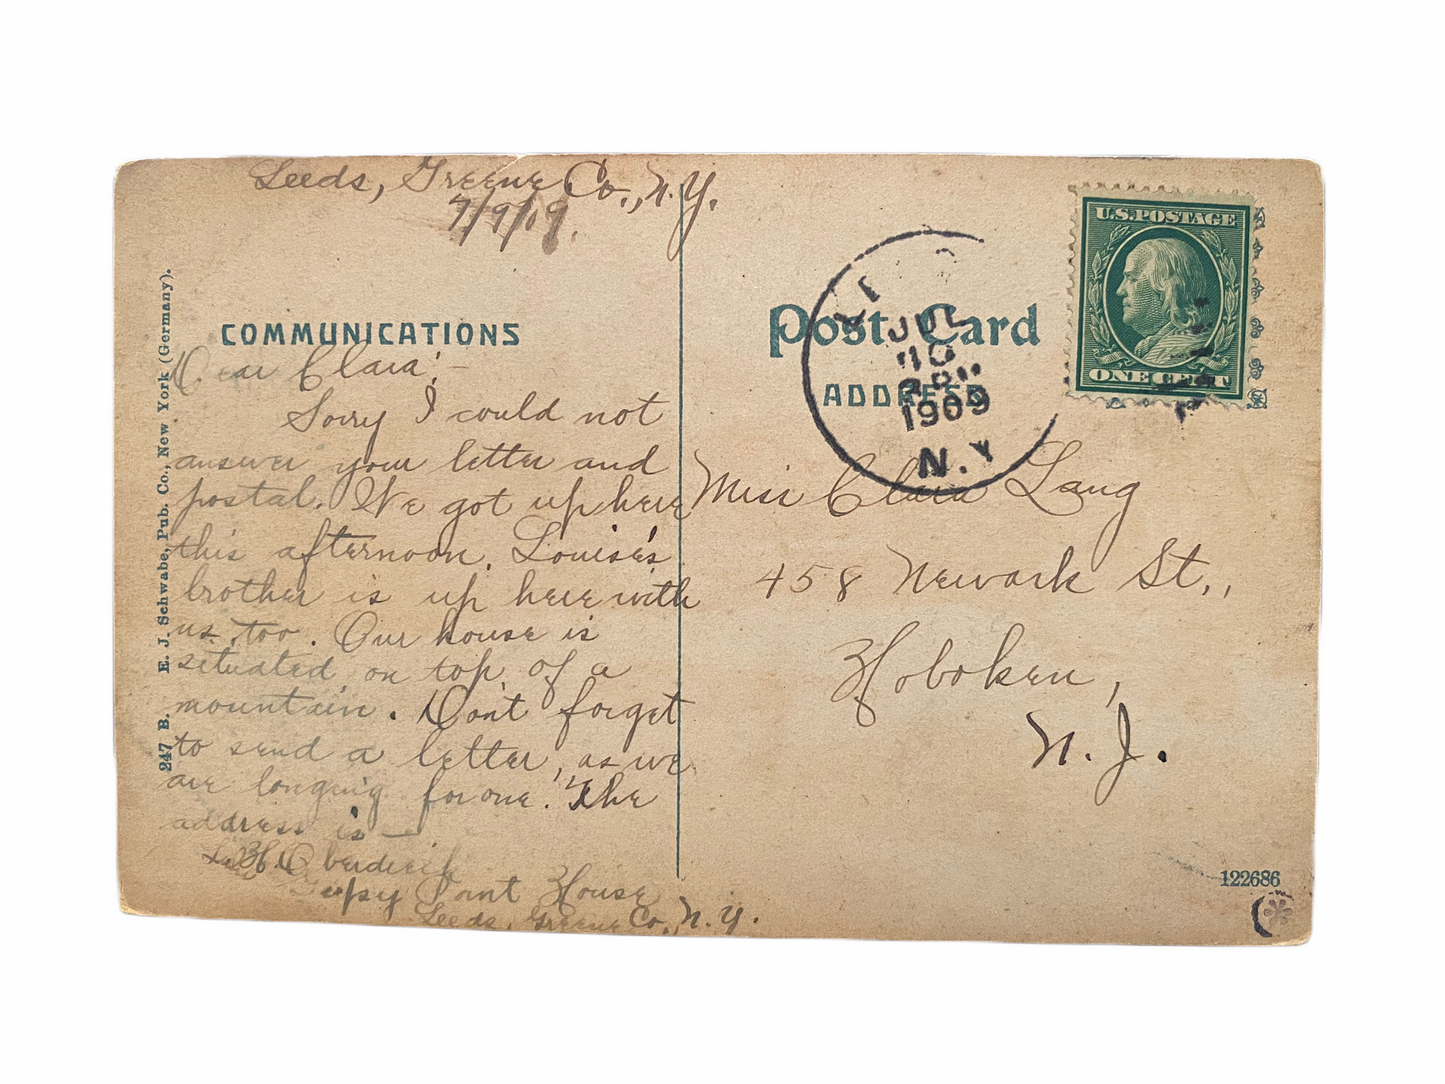 Leeds, Greene Co., N.Y.
7/9/09.
COMMUNICATIONS
Dear Clara;—
Sorry I could not
answer your letter and
postal. We got up here
this afternoon. Louise's
brother is up here with
us, too. Our house is
situated on top of a
mountain. Don't forget
to send a letter, as we
are longing for one. The
address is —
Point House
Leeds, Greene Co., N.Y.
247 B. E. J. Schwabe, Pub. Co., New York (Germany).
Post Card
ADDRESS
U.S. POSTAGE
ONE CENT
JUL
10
1909
N.Y
Miss Clara Lang
458 Newark St.,
Hoboken,
N.J.
122686